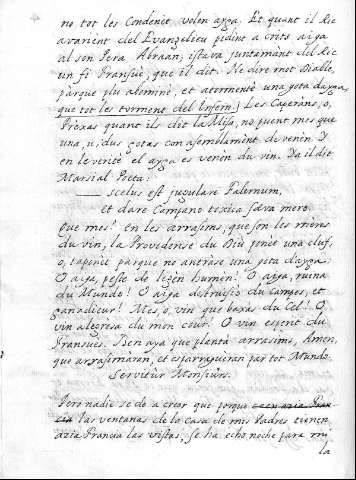 no tot les Condenit volen ayga. Et quant il Ric
avarient del Evangeleeu pedint a crits aiga
al son Pera Abraan, istava juntamant del Ric
un fi Fransué, que il dit. Ne dire mot Diable,
parque plu abomine, et atormente una gota dayga,
que tot les turment del Infern. Les Caperans, o,
Prexas quant ils dit la Misa, no puent mes que
una, u, dus gotas con asemblament de venen. Y
en le verité el ayga es venen du vin. Da il dit
Marsial Poeta.
scelus est jugulare Falernum,
et dare Campano toxica sæva mero.
Que mes? En les arrasims, que son les mères
du vin, la Providense du Diu posice una cluf,
o, tapenie parque no antrase una gota dayga.
O aiga, peste de lezen humen! O aiga, ruina
du Munde! O aiga destruisis du campes, et
ganadieur! Mes, o, vin que baxas du Cel! O
vin alegresa du mon ceur! O vin esperit du
Fransues. Ben aya que plenta arrasims, Amen,
que arrasimaran, et esfarraguiran par tot Munde.
Servitur Monsiurs.
Pero nadie se dè a creer que porque
las ventanas de la casa de mis Padres tienen
azia Francia las vistas, se ha echo noche para mi
la